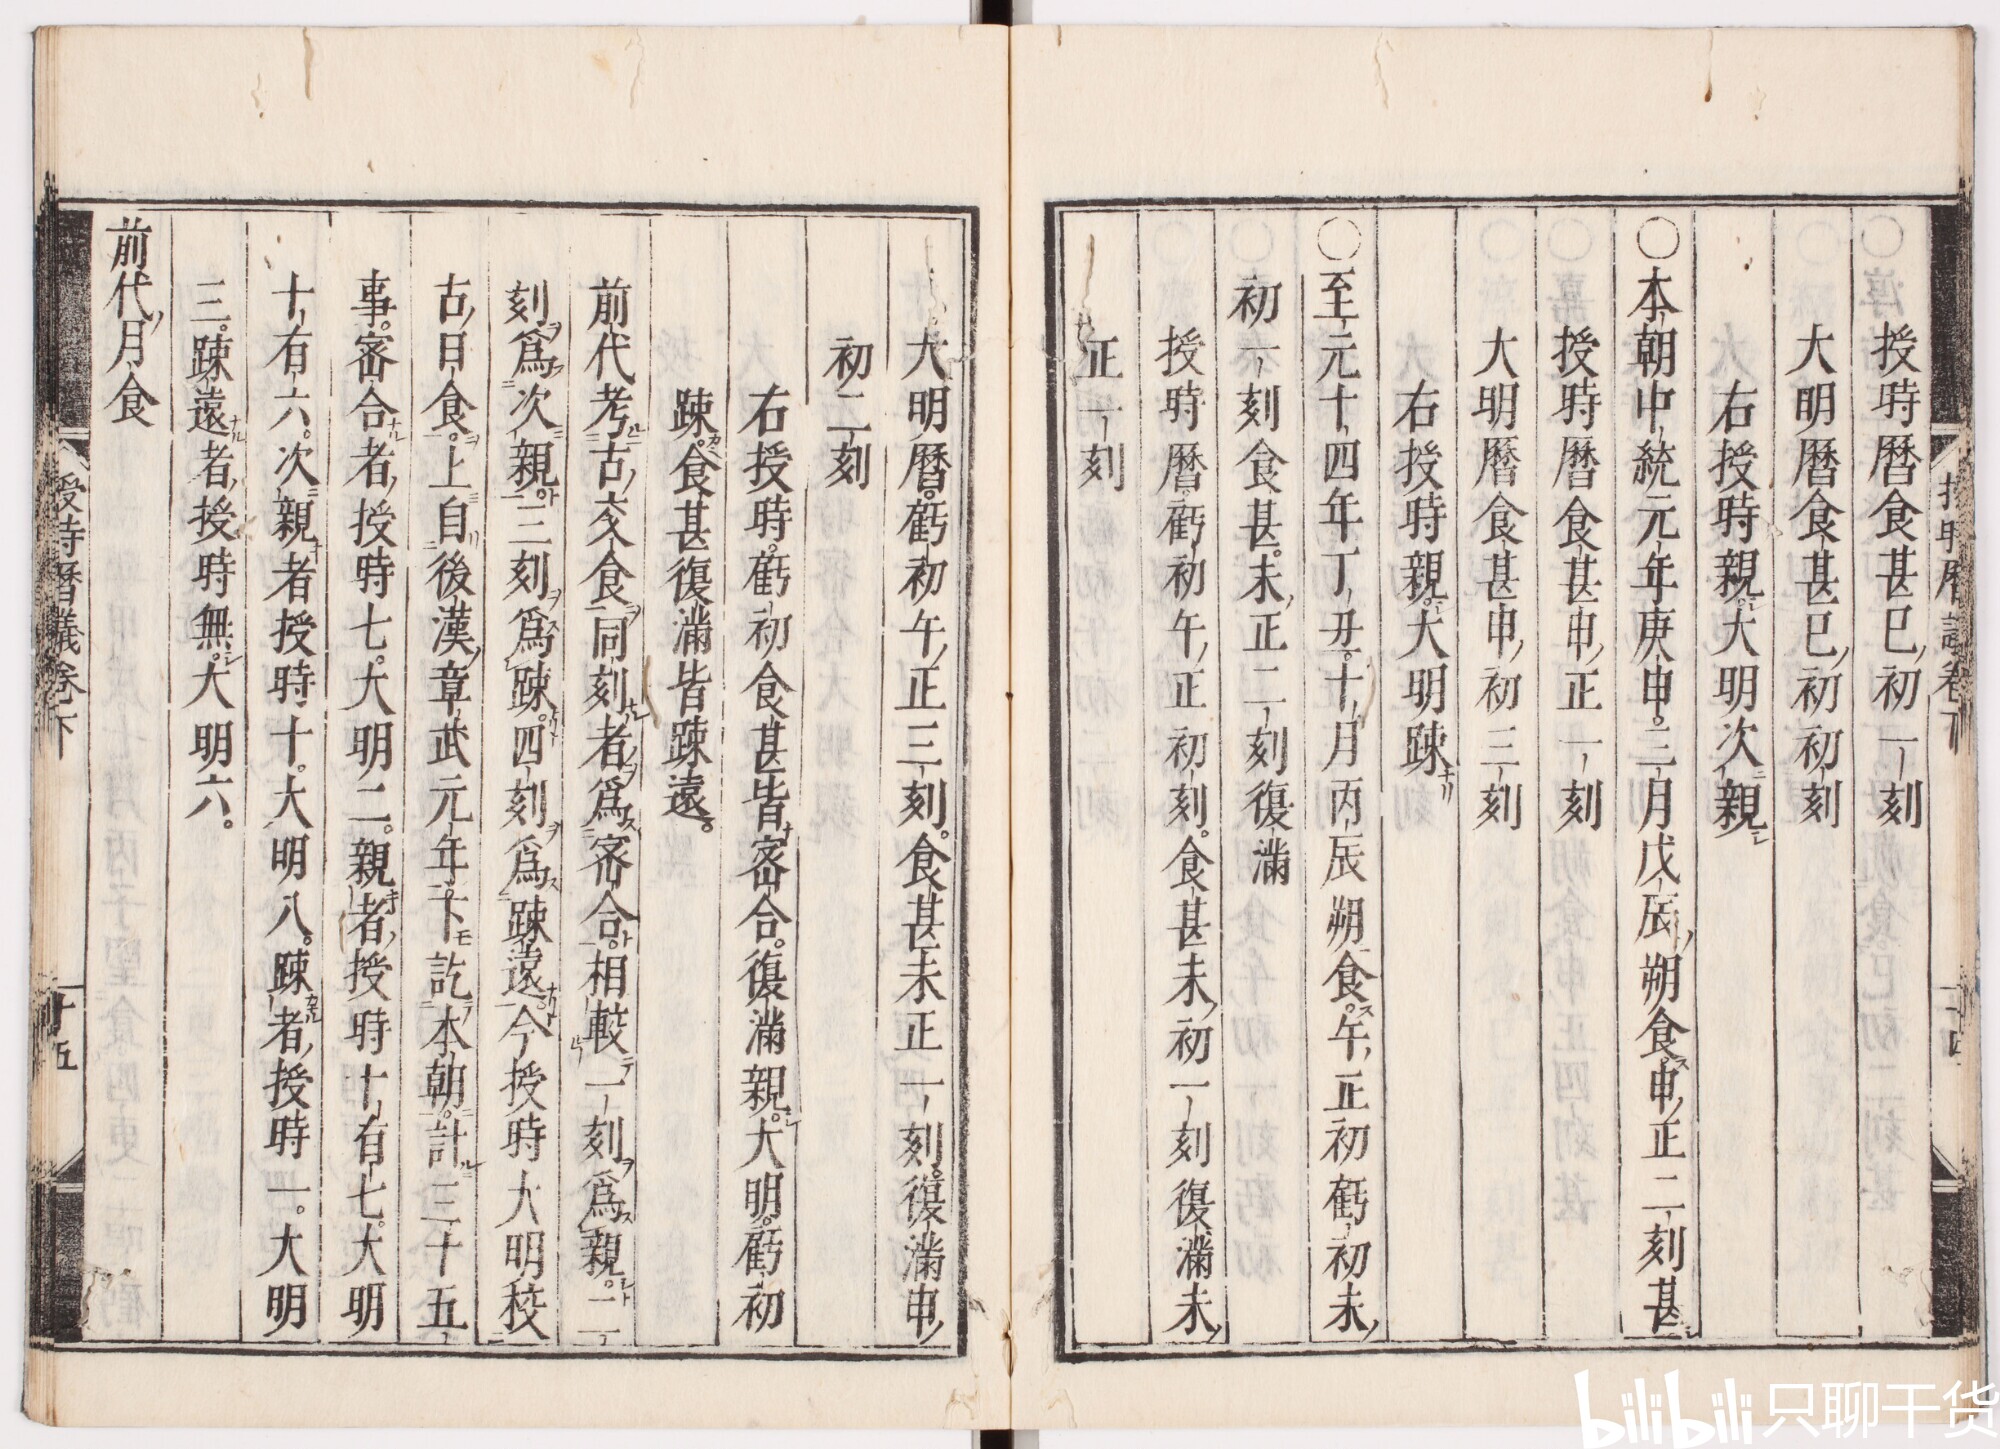 授時曆食甚巳初一刻
大明曆食甚巳初初刻
右授時親大明次親
〇本朝中統元年庚申三月戊辰朔食申正二刻甚
授時曆食甚申正一刻
大明曆食甚申初三刻
右授時親大明踈
〇至元十四年丁丑十月丙辰朔食午正初虧初未
初一刻食甚未正二刻復滿
授時曆虧初午正初刻食甚未初一刻復滿未
正一刻
大明曆虧初午正三刻食甚未正一刻復滿申
初二刻
右授時虧初食甚皆密合復滿親大明虧初
踈食甚復滿皆踈遠
前代考古交食同刻者爲密合相較一刻爲親二
刻爲次親三刻爲踈四刻爲踈遠今授時大明校
古日食上自後漢章武元年下訖本朝計三十五
事密合者授時七大明二親者授時十有七大明
十有六次親者授時十大明八踈者授時一大明
三踈遠者授時無大明六
前代月食
授時曆議卷下
十五
bilibili 只聊干货